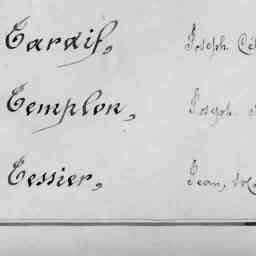 Tardif, Joseph
Templon, Joseph
Tessier, Jean,